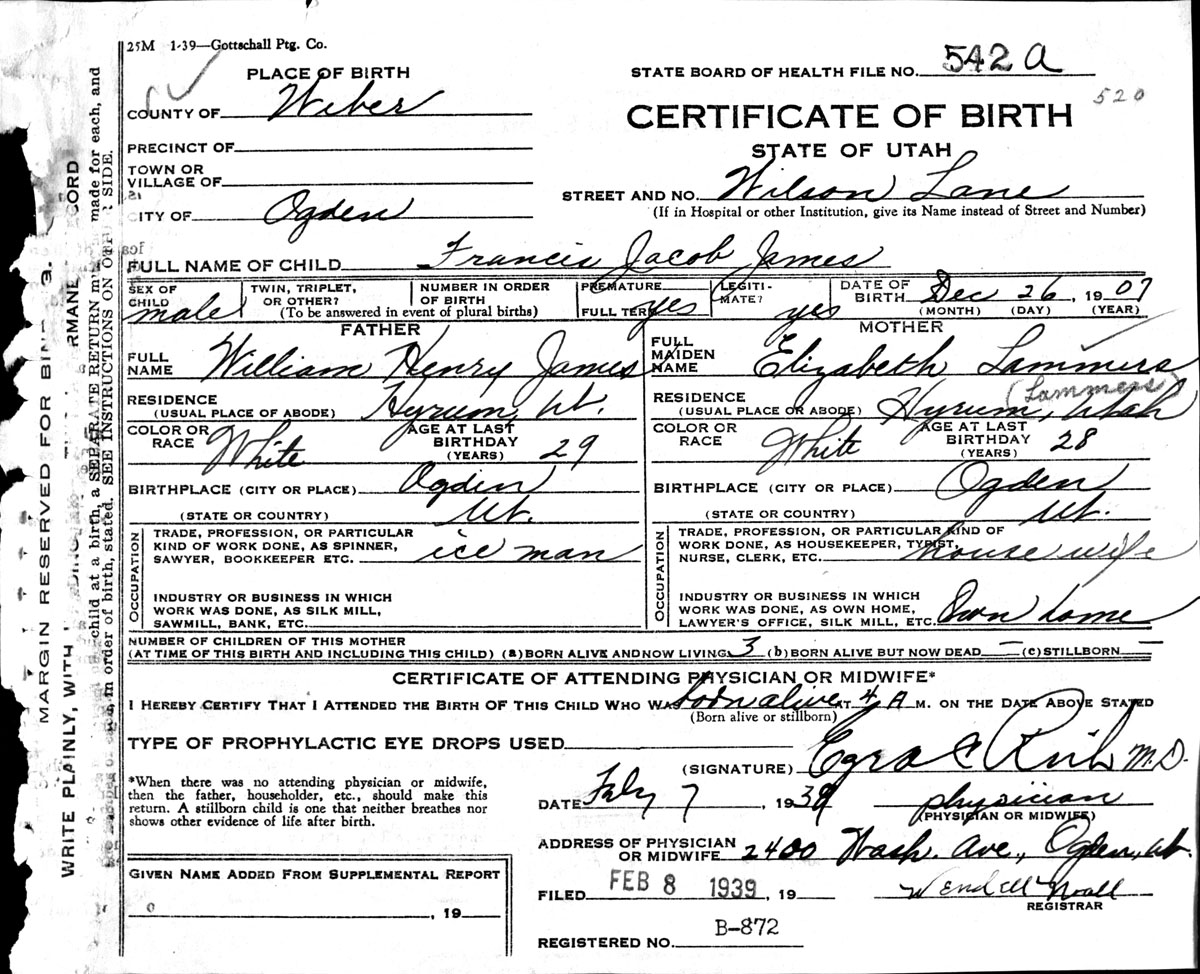 25M 1-39—Gottschall Ptg. Co.
PLACE OF BIRTH
STATE BOARD OF HEALTH FILE NO. 542 a
520
COUNTY OF Weber
CERTIFICATE OF BIRTH
PRECINCT OF
STATE OF UTAH
TOWN OR
VILLAGE OF
STREET AND NO. Wilson Lane
(If in Hospital or other Institution, give its Name instead of Street and Number)
CITY OF Ogden
FULL NAME OF CHILD Francis Jacob James
SEX OF CHILD male
TWIN, TRIPLET, OR OTHER?
NUMBER IN ORDER OF BIRTH
(To be answered in event of plural births)
PREMATURE
FULL TERM yes
LEGITI-MATE? yes
DATE OF BIRTH Dec 26, 1907
(MONTH) (DAY) (YEAR)
FATHER
FULL NAME William Henry James
RESIDENCE (USUAL PLACE OF ABODE) Hyrum, Ut.
COLOR OR RACE White
AGE AT LAST BIRTHDAY (YEARS) 29
BIRTHPLACE (CITY OR PLACE) Ogden
(STATE OR COUNTRY) Ut.
OCCUPATION
TRADE, PROFESSION, OR PARTICULAR
KIND OF WORK DONE, AS SPINNER,
SAWYER, BOOKKEEPER ETC. ice man
INDUSTRY OR BUSINESS IN WHICH
WORK WAS DONE, AS SILK MILL,
SAWMILL, BANK, ETC.
MOTHER
FULL MAIDEN NAME Elizabeth Lammers
(Lammers)
RESIDENCE (USUAL PLACE OR ABODE) Hyrum, Utah
COLOR OR RACE White
AGE AT LAST BIRTHDAY (YEARS) 28
BIRTHPLACE (CITY OR PLACE) Ogden
(STATE OR COUNTRY) Ut.
OCCUPATION
TRADE, PROFESSION, OR PARTICULAR KIND OF
WORK DONE, AS HOUSEKEEPER, TYPIST,
NURSE, CLERK, ETC. house wife
INDUSTRY OR BUSINESS IN WHICH
WORK WAS DONE, AS OWN HOME,
LAWYER'S OFFICE, SILK MILL, ETC. Own home
NUMBER OF CHILDREN OF THIS MOTHER
(AT TIME OF THIS BIRTH AND INCLUDING THIS CHILD) (a) BORN ALIVE AND NOW LIVING 3 (b) BORN ALIVE BUT NOW DEAD — (c) STILLBORN —
CERTIFICATE OF ATTENDING PHYSICIAN OR MIDWIFE*
I HEREBY CERTIFY THAT I ATTENDED THE BIRTH OF THIS CHILD WHO WAS born alive AT 4 A M. ON THE DATE ABOVE STATED
(Born alive or stillborn)
TYPE OF PROPHYLACTIC EYE DROPS USED
*When there was no attending physician or midwife,
then the father, householder, etc., should make this
return. A stillborn child is one that neither breathes nor
shows other evidence of life after birth.
(SIGNATURE) Ezra C Rich M.D.
DATE Feb 7, 1939 physician
(PHYSICIAN OR MIDWIFE)
ADDRESS OF PHYSICIAN
OR MIDWIFE 2400 Wash. Ave., Ogden, Ut.
GIVEN NAME ADDED FROM SUPPLEMENTAL REPORT
, 19
FILED FEB 8 1939, 19
Wendell Noall
REGISTRAR
REGISTERED NO. B-872
MARGIN RESERVED FOR
WRITE PLAINLY, WITH
child at a birth, a SEPARATE RETURN must be made for each, and
in order of birth, stated. SEE INSTRUCTIONS ON OTHER SIDE.